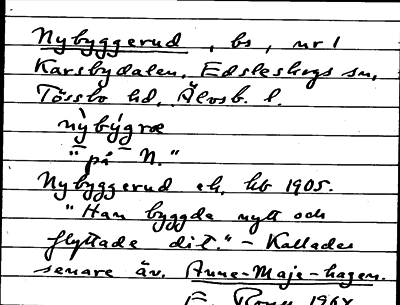 Nybyggerud, bs, nr 1
Karsbydalen, Edsleskogs sn,
Tössbo hd, Älvsb. l.
nỳbýgræ
"på N."
Nybyggerud eh, hb 1905.
"Han byggde nytt och
flyttade dit." – Kallades
senare äv. Anne-Maja-hagen.
1964